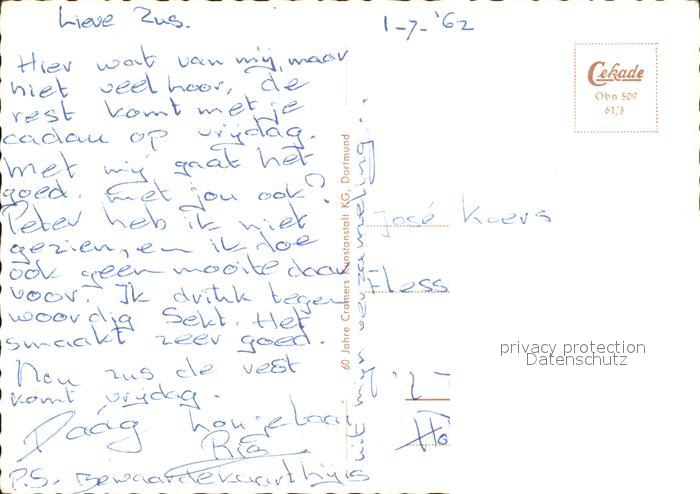 Lieve Zus.
1-7-'62
Hier wat van mij, maar
niet veel hoor, de
rest komt met je
cadau op vrijdag.
Met mij gaat het
goed. Met jou ook?
Peter heb ik niet
gezien, en ik doe
ook geen moeite daar
voor. Ik drink tegen
woordig Sekt. Het
smaakt zeer goed.
Nou zus de rest
komt vrijdag.
Dáág hou je taai
Ria
P.S. Bewaar de kaart hij is
uit mijn verzameling.
60 Jahre Cramers Kunstanstalt KG, Dortmund
Cekade
Obn 509
61/3
José Koers
Fless
Ho
privacy protection
Datenschutz